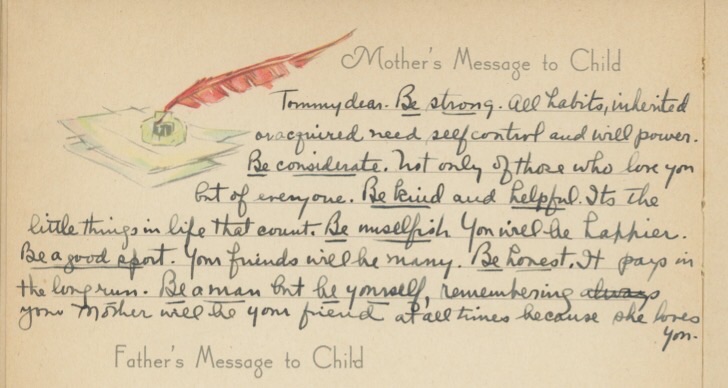 Mother's Message to Child
Tommy dear. Be strong. All habits, inherited
or acquired need self control and will power.
Be considerate. Not only of those who love you
but of everyone. Be kind and helpful. Its the
little things in life that count. Be unselfish You will be happier.
Be a good sport. Your friends will be many. Be honest. It pays in
the long run. Be a man but be yourself, remembering always
your Mother will be your friend at all times because she loves
you.
Father's Message to Child